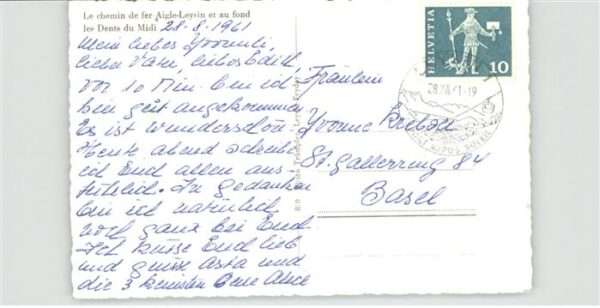 Le chemin de fer Aigle-Leysin et au fond
les Dents du Midi
28-8-1961
Mein liebes Yvonnli,
lieber Vati, liebes
Vor 10 Min. bin ich
gut angekommen
Es ist wunderschön
Heute abend schreibe
ich Euch allen aus-
führlich. In Gedanken
bin ich natürlich
noch ganz bei Euch
Ich küsse Euch lieb
und grüsse Asta und
die 3
Fräulein
Yvonne
St. Gallerring 84
Basel
HELVETIA
10